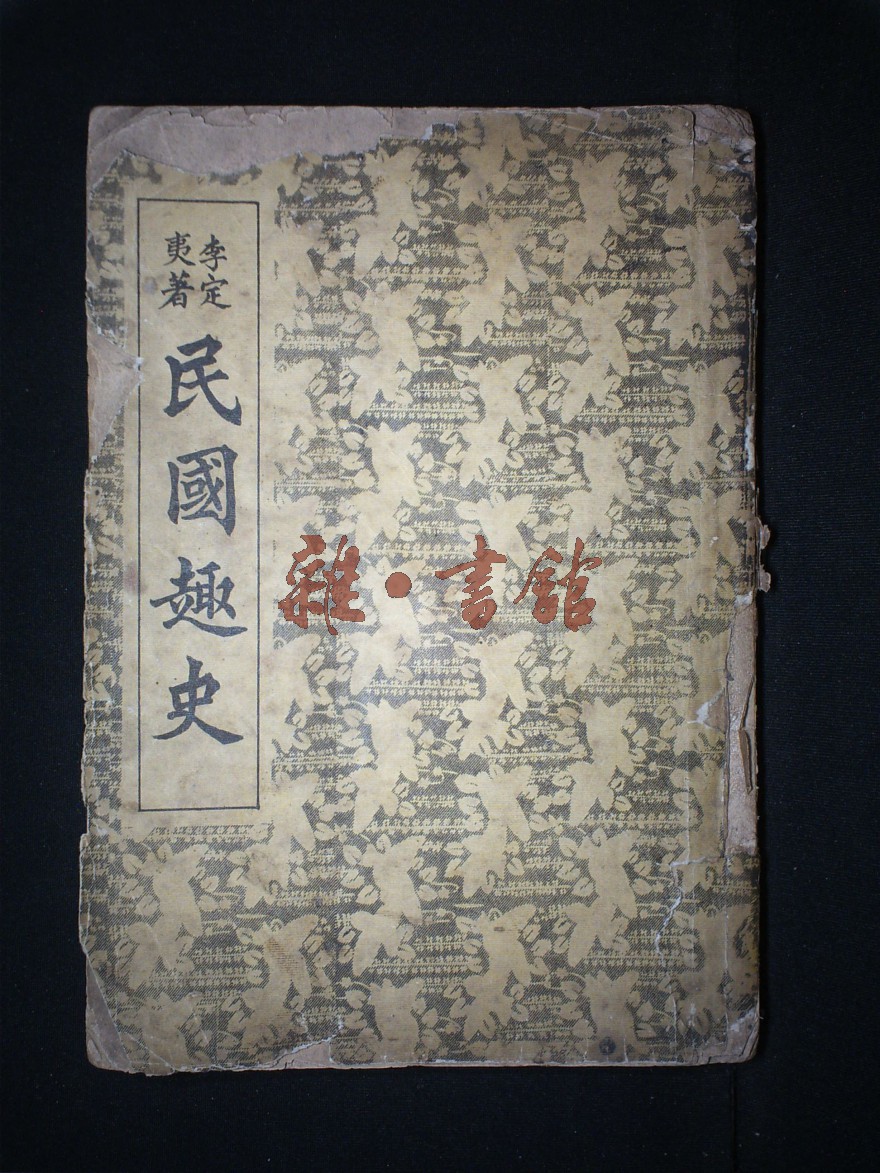 李定
夷著
民國趣史
雜·書館